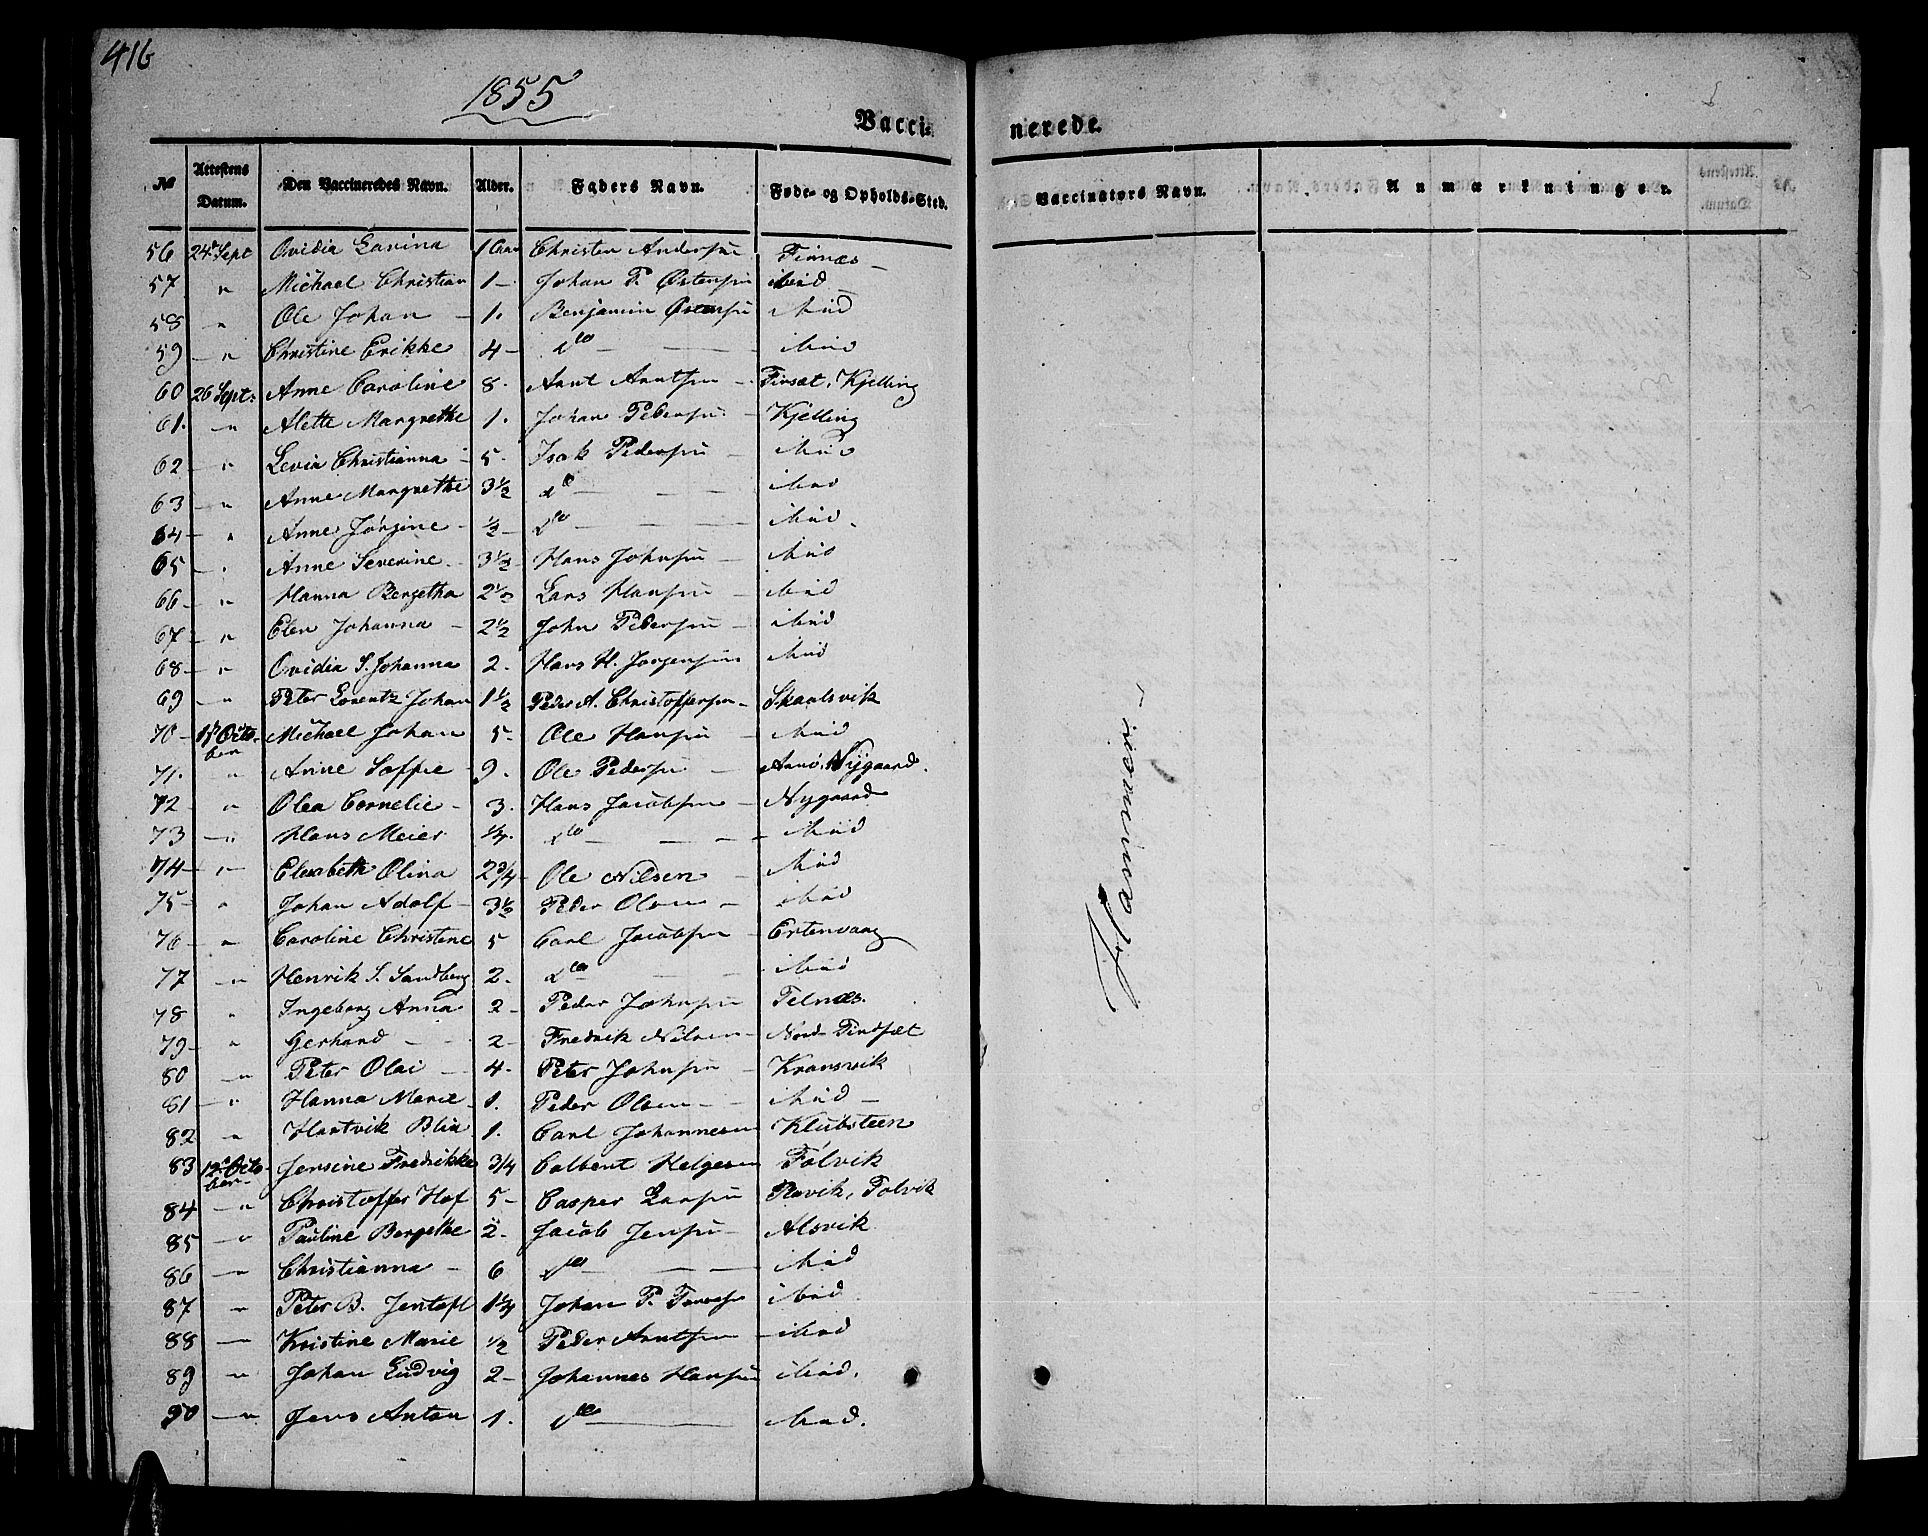 416
1855
Vaccinerede.
No Attestens Datum. Den Vaccineredes Navn. Alder. Faders Navn. Føde- og Opholds-Sted. Vaccinators Navn. Anmærkninger.
56 24de Sept Ovidia Lavina 1 Aar Christen Andersen Finnæs
57 " Michael Christian 1 Johan P. Østensen ibid
58 " Ole Johan 1. Benjamin Østensen ibid
59 " Christine Erikke 4 do ibid
60 26 Sept: Anne Caroline 8. Arnt Arntsen Finsæt, Kjelling
61. " Alette Margrethe 1. Johan Pedersen Kjelling
62 " Levia Christianna 5. Isak Pedersen ibid
63 " Anne Margrethe 3½ do ibid
64 " Anne Jørgine ½ do ibid.
65 " Anne Severine 3½ Hans Johnsen ibid
66 " Hanna Bergetha 2½ Lars Hansen ibid
67 " Elen Johanna 2½ John Pedersen ibid
68 " Ovidia S. Johanna 2. Hans H. Jørgensen ibid
69 " Peter Lorentz Johan 1½ Peder A. Christoffersen Skaalsvik
70 1ste October Michael Johan 5. Ole Hansen ibid
71. " Anne Soffie 9. Ole Pedersen Arnø, Nygaard.
72 " Olea Cornelie 3. Hans Jacobsen Nygaard
73 " Hans Meier ¼. do ibid
74 " Elisabeth Olina 2¾ Ole Nilsen ibid
75 " Johan Adolf 3½ Peder Olsen ibid
76 " Caroline Christine 5 Carl Jacobsen Ertenvaag
77 " Henrik S. Sandberg 2. do ibid
78 " Ingeborg Anna 2 Peder Johnsen Telnæs.
79 " Gerhard 2 Fredrik Nilsen Nord-Findsæt
80 " Peter Olai 4. Peter Johnsen Kransvik
81 " Hanna Marie 1. Peder Olsen ibid
82 " Hartvik Blix 1. Carl Johannesen Klubsteen
83 12te October Jensine Fredrikke ¾ Colbent Helgesen Følvik
84 " Christoffer Hof 5 Casper Larsen Ravik, Følvik
85 " Pauline Bergethe 2. Jacob Jensen Alsvik
86 " Christianna 6 do ibid
87 " Peter B. Jentoft 1¼ Johan P. ibid
88 " Kristine Marie ½ Peder Arntsen ibid
89 " Johan Ludvig 2 Johannes Hansen ibid.
90 " Jens Anton 1. do ibid.